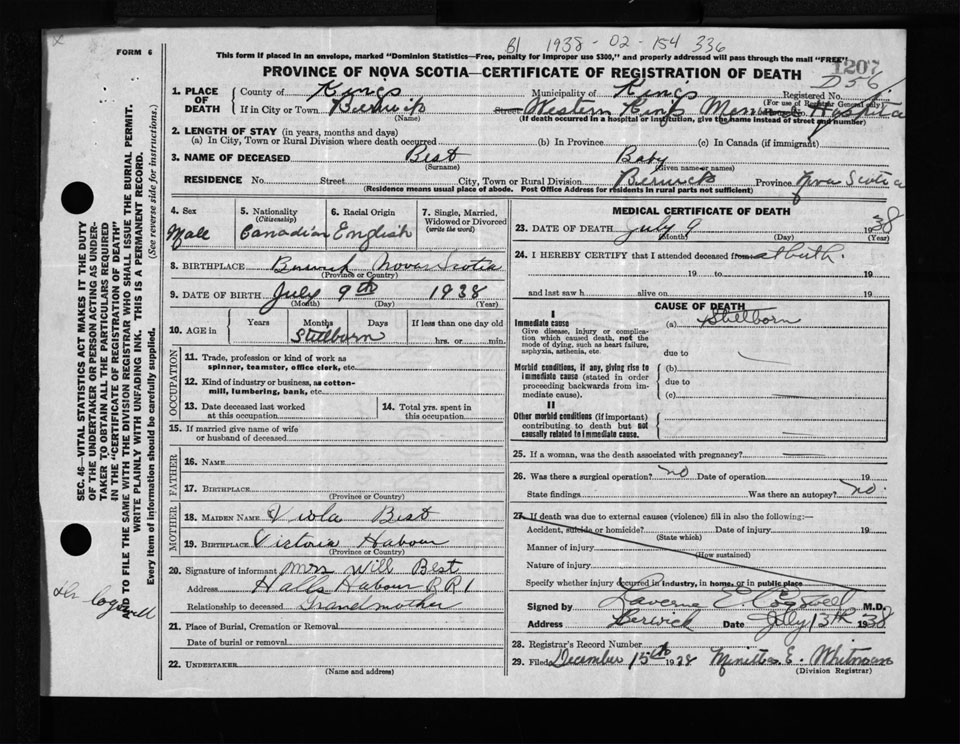 B1 1938-02-154 336
FORM 6
This form if placed in an envelope, marked "Dominion Statistics—Free, penalty for improper use $300," and properly addressed will pass through the mail "FREE"
1207
PROVINCE OF NOVA SCOTIA—CERTIFICATE OF REGISTRATION OF DEATH
1. PLACE OF DEATH County of Kings Municipality of Kings Registered No. 756
(For use of Registrar General only)
If in City or Town Berwick Street Western Kings Memorial Hospital
(Name) (If death occurred in a hospital or institution, give the name instead of street and number)
2. LENGTH OF STAY (in years, months and days)
(a) In City, Town or Rural Division where death occurred (b) In Province (c) In Canada (if immigrant)
3. NAME OF DECEASED Best Baby
(Surname) (Given name or names)
RESIDENCE No. Street City, Town or Rural Division Berwick Province Nova Scotia
(Residence means usual place of abode. Post Office Address for residents in rural parts not sufficient)
4. Sex Male
5. Nationality (Citizenship) Canadian
6. Racial Origin English
7. Single, Married, Widowed or Divorced (write the word)
8. BIRTHPLACE Berwick Nova Scotia
(Province or Country)
9. DATE OF BIRTH July 9th 1938
(Month) (Day) (Year)
10. AGE in Years Months Days If less than one day old
Stillborn hrs. or min.
OCCUPATION
11. Trade, profession or kind of work as spinner, teamster, office clerk, etc.
12. Kind of industry or business, as cotton-mill, lumbering, bank, etc.
13. Date deceased last worked at this occupation
14. Total yrs. spent in this occupation
15. If married give name of wife or husband of deceased
FATHER
16. NAME
17. BIRTHPLACE
(Province or Country)
MOTHER
18. MAIDEN NAME Viola Best
19. BIRTHPLACE Victoria Habour
(Province or Country)
20. Signature of informant Mrs Will Best
Address Halls Habour RR1
Relationship to deceased Grandmother
21. Place of Burial, Cremation or Removal
Date of burial or removal
22. UNDERTAKER
(Name and address)
MEDICAL CERTIFICATE OF DEATH
23. DATE OF DEATH July 9 1938
(Month) (Day) (Year)
24. I HEREBY CERTIFY that I attended deceased from at birth.
19 to 19
and last saw h alive on 19
CAUSE OF DEATH
I
Immediate cause (a) Stillborn
Give disease, injury or complication which caused death, not the mode of dying, such as heart failure, asphyxia, asthenia, etc.
due to
Morbid conditions, if any, giving rise to immediate cause (stated in order proceeding backwards from immediate cause).
(b)
due to
(c)
II
Other morbid conditions (if important) contributing to death but not causally related to immediate cause.
25. If a woman, was the death associated with pregnancy?
26. Was there a surgical operation? no Date of operation 19
State findings Was there an autopsy? no
27. If death was due to external causes (violence) fill in also the following:—
Accident, suicide or homicide? Date of injury 19
(State which)
Manner of injury
(How sustained)
Nature of injury
Specify whether injury occurred in industry, in home, or in public place
Signed by Laverne E. Cogswell M.D.
Address Berwick Date July 13th 1938
28. Registrar's Record Number
29. Filed December 15th 1938 E. Whitman
(Division Registrar)
SEC. 46—VITAL STATISTICS ACT MAKES IT THE DUTY
OF THE UNDERTAKER OR PERSON ACTING AS UNDER-
TAKER TO OBTAIN ALL THE PARTICULARS REQUIRED
IN THE "CERTIFICATE OF REGISTRATION OF DEATH"
AND TO FILE THE SAME WITH THE DIVISION REGISTRAR WHO SHALL ISSUE THE BURIAL PERMIT.
WRITE PLAINLY WITH UNFADING INK. THIS IS A PERMANENT RECORD.
Every item of information should be carefully supplied. (See reverse side for instructions.)
Dr Cogswell